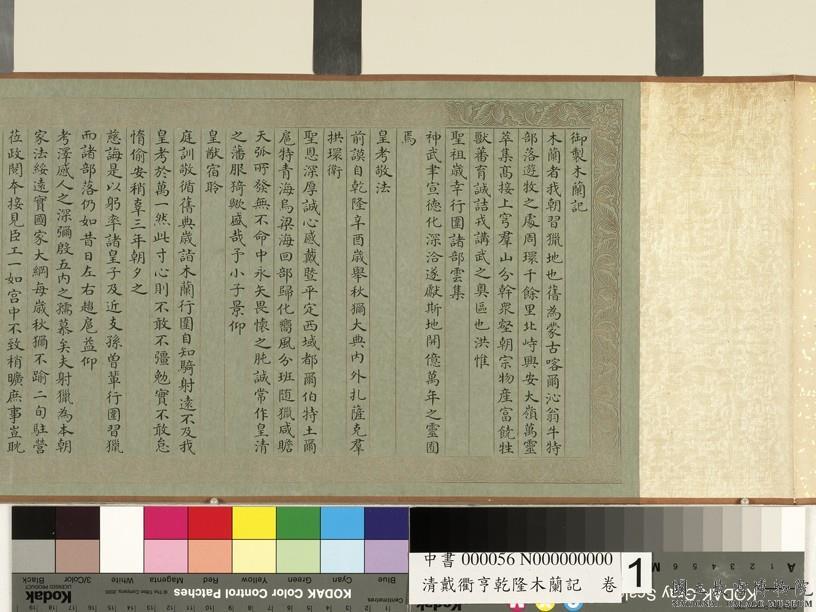 御製木蘭記
木蘭者我朝習獵地也舊為蒙古喀爾沁翁牛特
部落遊牧之處周環千餘里北峙興安大嶺萬靈
萃集高接上穹羣山分幹衆壑朝宗物產富饒牲
獸蕃育誠詰戎講武之奧區也洪惟
聖祖歲幸行圍諸部雲集
神武聿宣德化深洽遂獻斯地開億萬年之靈囿
焉
皇考敬法
前謨自乾隆辛酉歲舉秋獮大典內外扎薩克羣
拱環衛
聖恩深厚誠心感戴暨平定西域都爾伯特土爾
扈特青海烏梁海回部歸化嚮風分班隨獵咸瞻
天弧所發無不命中永矢畏懷之肫誠常作皇清
之藩服猗歟盛哉予小子景仰
皇猷宿聆
庭訓敬循舊典歲詣木蘭行圍自知騎射遠不及我
皇考於萬一然此寸心則不敢不彊勉實不敢怠
惰偷安稍辜三年朝夕之
慈誨是以躬率諸皇子及近支孫曾輩行圍習獵
而諸部落仍如昔日左右趨扈益仰
考澤感人之深彌殷五內之孺慕矣夫射獵為本朝
家法綏遠實國家大綱每歲秋獮不踰二旬駐營
莅政閱本接見臣工一如宮中不致稍曠庶事豈眈
Black 3/Color White Magenta Red Yellow Green Cyan Blue
Kodak
KODAK Color Control Patches
Centimetres
中書 000056 N000000000
清戴衢亨乾隆木蘭記 卷
1
Kodak
A
國立故宮博物院
NATIONAL PALACE MUSEUM